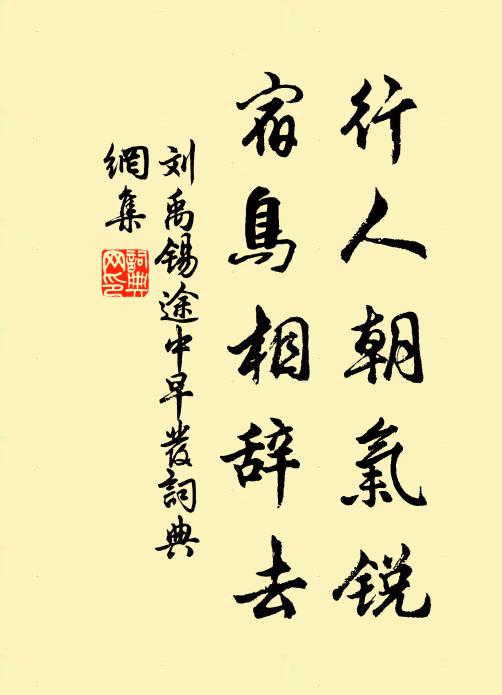 行人朝氣锐
宿鳥相辞去
刘禹锡途中早發詞典
網集
詞典
网印